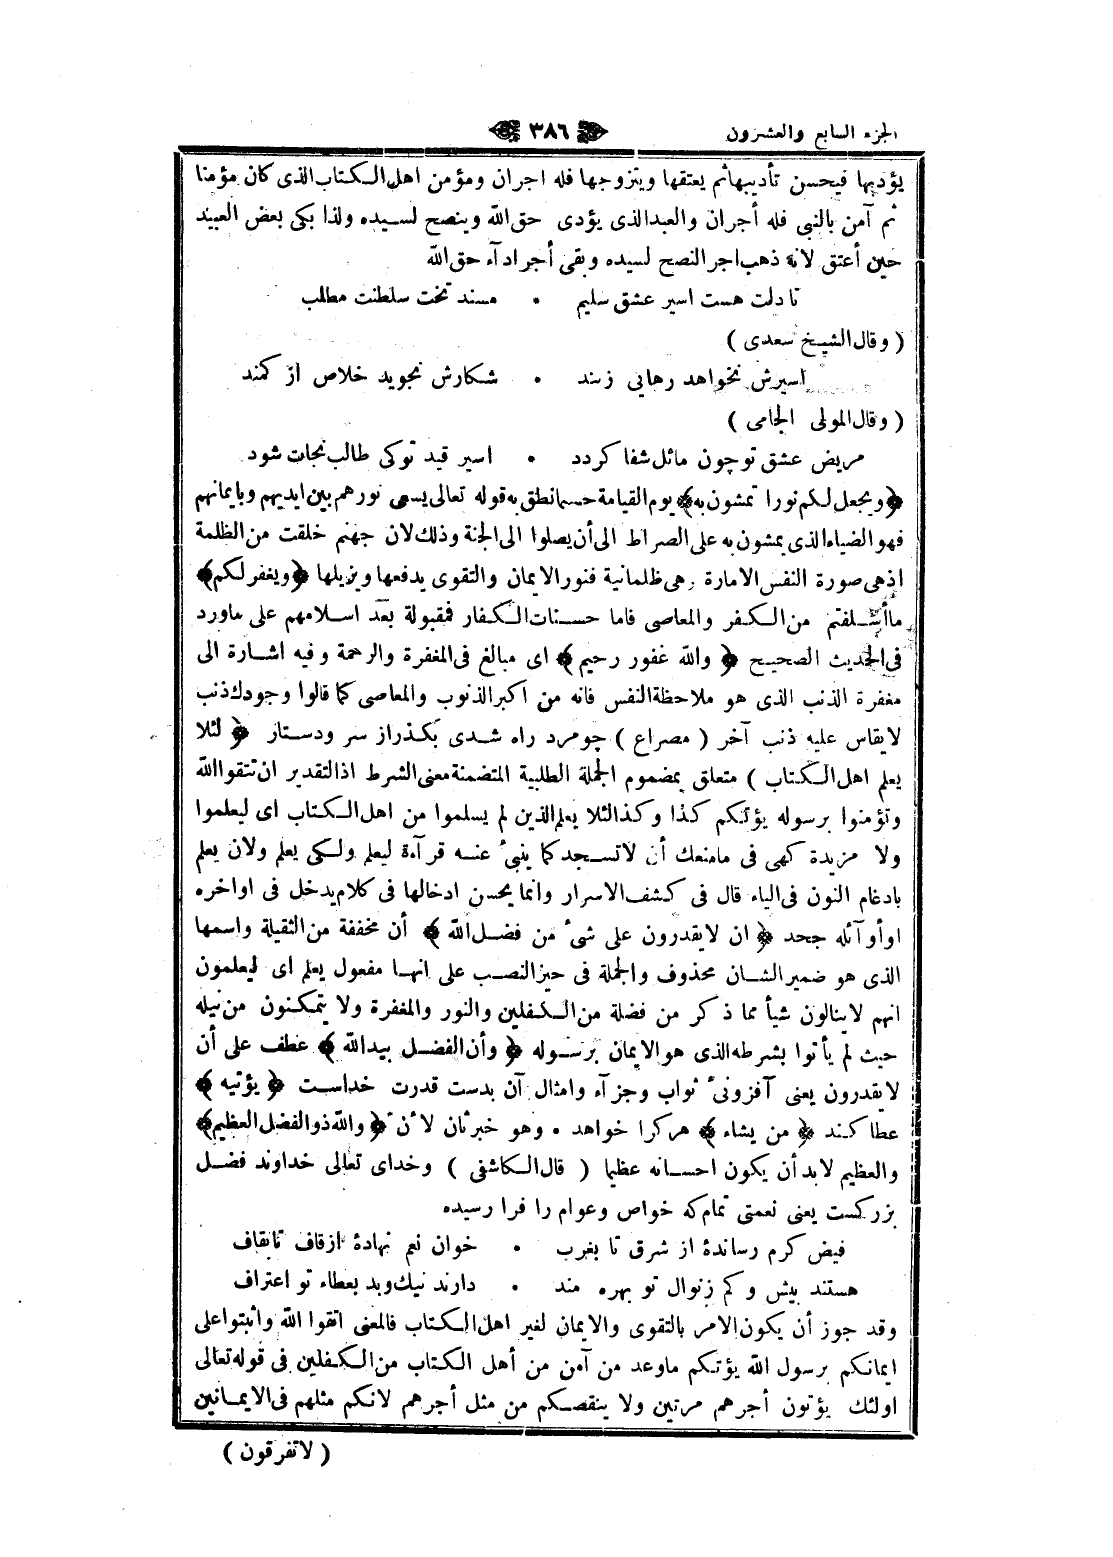 الجزء السابع والعشرون ٣٨٦
يؤدبها فيحسن تأديبها ثم يعتقها ويتزوجها فله اجران ومؤمن اهل الكتاب الذى كان مؤمنا
ثم آمن بالنبى فله أجران والعبد الذى يؤدى حق الله وينصح لسيده ولذا بكى بعض العبيد
حين أعتق لانه ذهب اجر النصح لسيده وبقى أجر ادآء حق الله
تا دلت هست اسير عشق سليم • مسند تخت سلطنت مطلب
( وقال الشيخ سعدى )
اسيرش نخواهد رهايى ز بند • شكارش نجويد خلاص از كمند
( وقال المولى الجامى )
مريض عشق تو چون مائل شفا كردد • اسير قيد توكى طالب نجات شود
﴿ ويجعل لكم نورا تمشون به ﴾ يوم القيامة حسبما نطق به قوله تعالى يسعى نورهم بين ايديهم وبايمانهم
فهو الضياء الذى يمشون به على الصراط الى أن يصلوا الى الجنة وذلك لان جهنم خلقت من الظلمة
اذ هى صورة النفس الامارة وهى ظلمانية فنور الايمان والتقوى يدفعها ويزيلها ﴿ ويغفر لكم ﴾
ما أسلفتم من الكفر والمعاصى فاما حسنات الكفار فمقبولة بعد اسلامهم على ماورد
فى الحديث الصحيح ﴿ والله غفور رحيم ﴾ اى مبالغ فى المغفرة والرحمة وفيه اشارة الى
مغفرة الذنب الذى هو ملاحظة النفس فانه من اكبر الذنوب والمعاصى كما قالوا وجودك ذنب
لا يقاس عليه ذنب آخر ( مصراع ) چو مرد راه شدى بكذر از سر ودستار ﴿ لئلا
يعلم اهل الكتاب ) متعلق بمضموم الجملة الطلبية المتضمنة معنى الشرط اذ التقدير ان تتقوا الله
وتؤمنوا برسوله يؤتكم كذا وكذا لئلا يعلم الذين لم يسلموا من اهل الكتاب اى ليعلموا
ولا مزيدة كهى فى مامنعك أن لا تسجد كما ينبئ عنه قرآءة ليعلم ولكى يعلم ولان يعلم
بادغام النون فى الياء قال فى كشف الاسرار وانما يحسن ادخالها فى كلام يدخل فى اواخره
او أوآئله جحد ﴿ ان لا يقدرون على شئ من فضل الله ﴾ أن مخففة من الثقيلة واسمها
الذى هو ضمير الشان محذوف والجملة فى حيز النصب على انها مفعول يعلم اى ليعلمون
انهم لا ينالون شيأ مما ذكر من فضله من الكفلين والنور والمغفرة ولا يتمكنون من نيله
حيث لم يأتوا بشرطه الذى هو الايمان برسوله ﴿ وأن الفضل بيد الله ﴾ عطف على أن
لا يقدرون يعنى آفزونئ ثواب وجزآء وامثال آن بدست قدرت خداست ﴿ يؤتيه ﴾
عطا كند ﴿ من يشاء ﴾ هر كرا خواهد • وهو خبر ثان لأن ﴿ والله ذو الفضل العظيم ﴾
والعظيم لابد أن يكون احسانه عظيما ( قال الكاشفى ) وخداى تعالى خداوند فضل
بزركست يعنى نعمتى تمام كه خواص وعوام را فرا رسيده
فيض كرم رساندهٔ از شرق تا بغرب • خوان نعم نهادهٔ از قاف تا بقاف
هستند بيش و كم ز نوال تو بهره مند • دارند نيك وبد بعطاء تو اعتراف
وقد جوز أن يكون الامر بالتقوى والايمان لغير اهل الكتاب فالمعنى اتقوا الله واثبتوا على
ايمانكم برسول الله يؤتكم ماوعد من آمن من أهل الكتاب من الكفلين فى قوله تعالى
اولئك يؤتون أجرهم مرتين ولا ينقصكم من مثل أجرهم لانكم مثلهم فى الايمانين
( لا تفرقون )